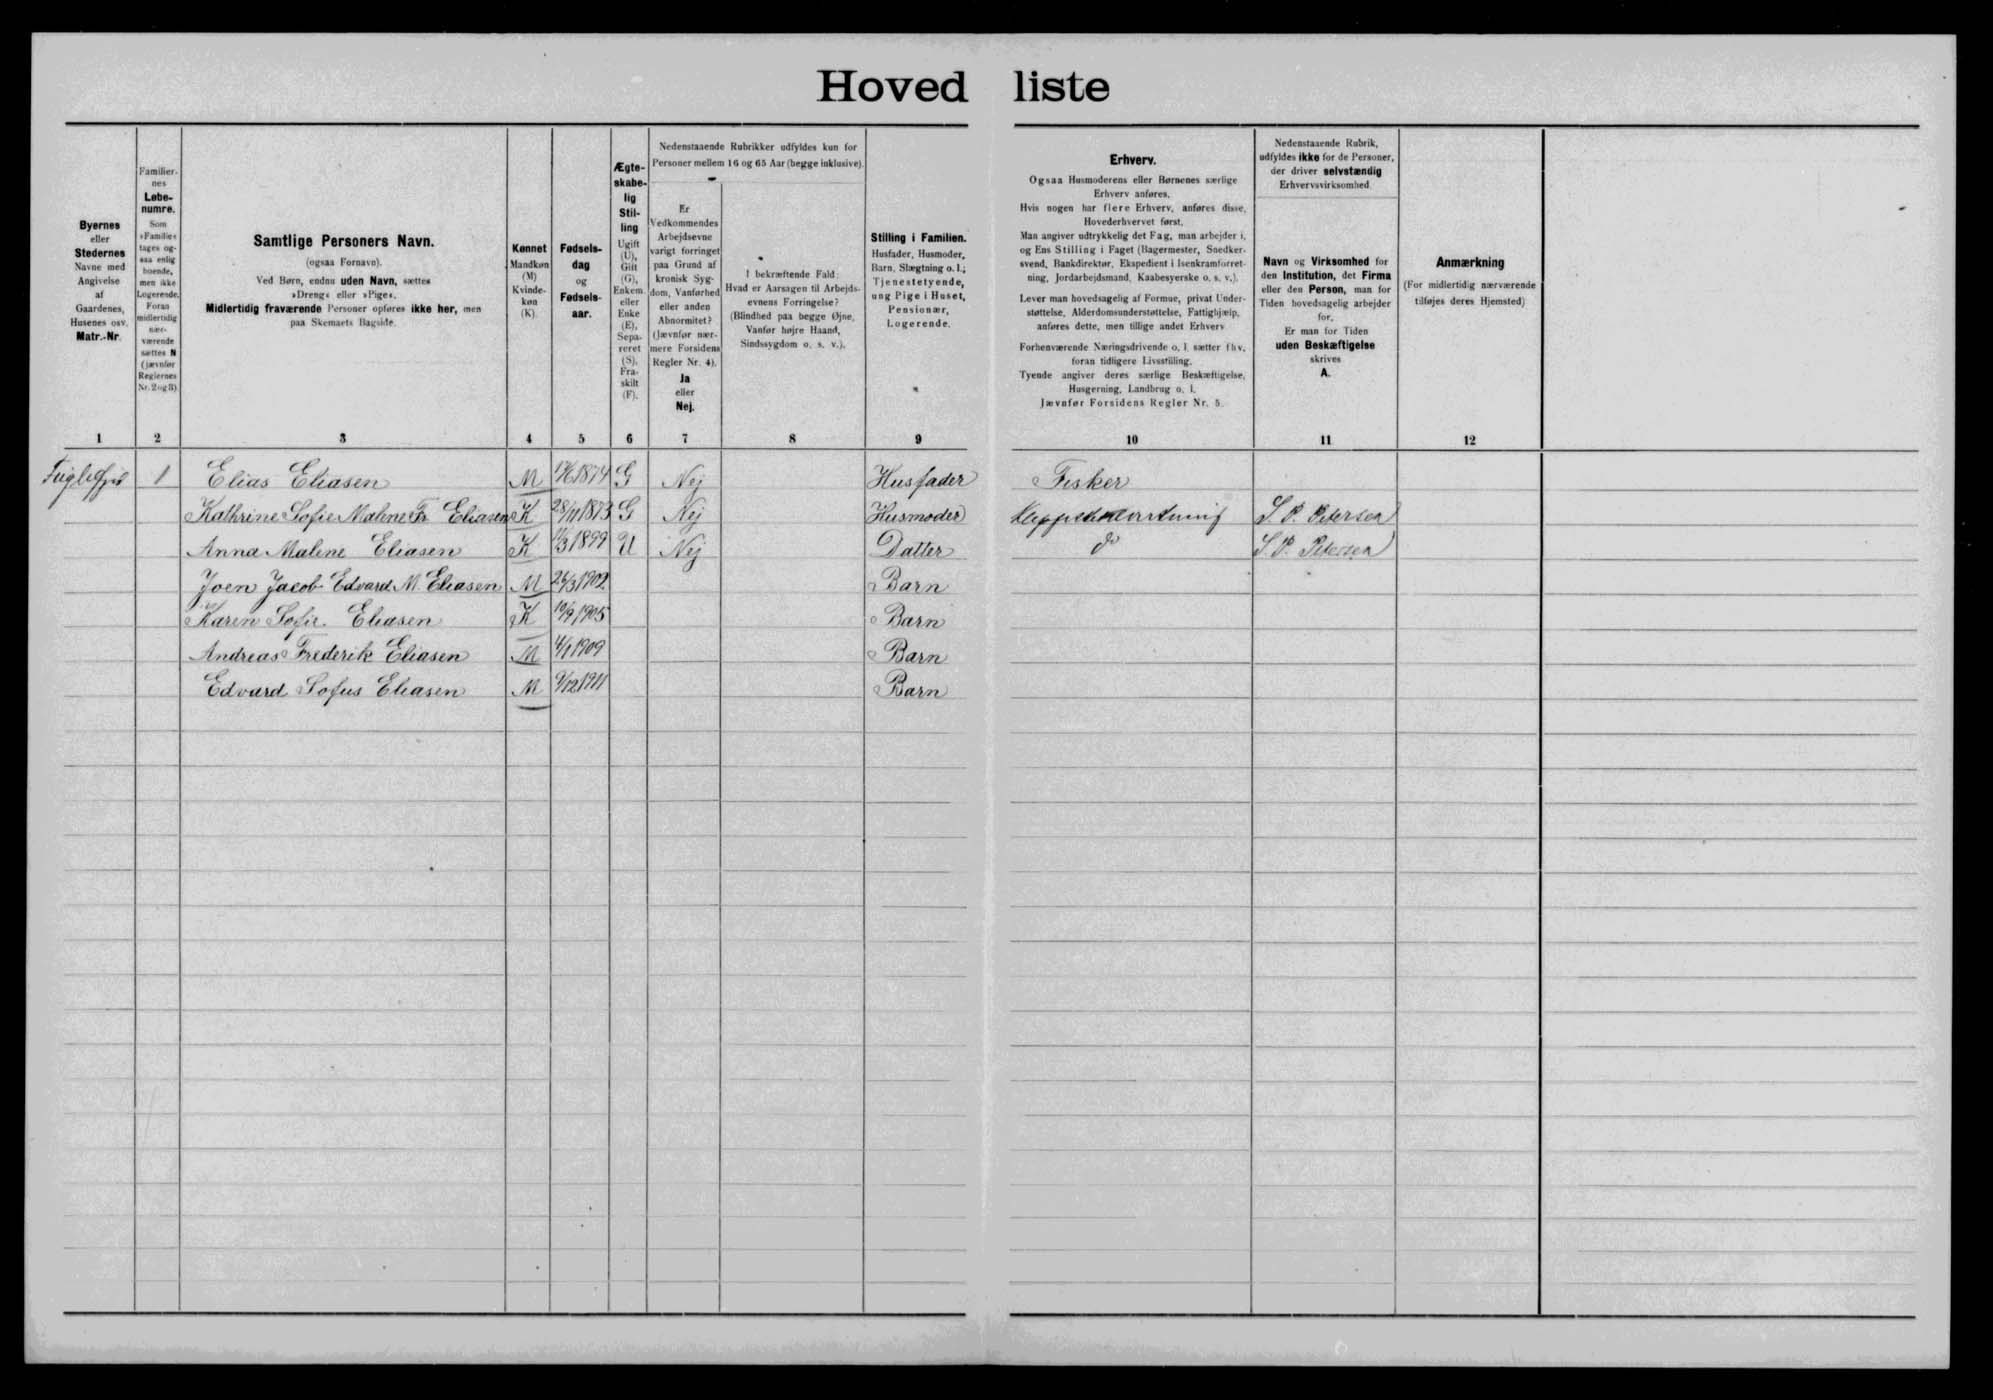 Hovedliste
Byernes
eller
Stedernes
Navne med
Angivelse
af
Gaardenes,
Husenes osv.
Matr.-Nr.
Familier-
nes
Løbe-
numre.
Som
»Familie«
tages og-
saa enlig
boende,
men ikke
Logerende.
Foran
midlertidig
nær-
værende
sættes N
(jævnfør
Reglernes
Nr. 2 og 3)
Samtlige Personers Navn.
(ogsaa Fornavn).
Ved Børn, endnu uden Navn, sættes
»Dreng« eller »Pige«.
Midlertidig fraværende Personer opføres ikke her, men
paa Skemaets Bagside.
Kønnet
Mandkøn
(M)
Kvinde-
køn
(K).
Fødsels-
dag
og
Fødsels-
aar.
Ægte-
skabe-
lig
Stil-
ling
Ugift
(U),
Gift
(G),
Enkem.
eller
Enke
(E),
Sepa-
reret
(S),
Fra-
skilt
(F).
Nedenstaaende Rubrikker udfyldes kun for
Personer mellem 16 og 65 Aar (begge inklusive).
Er
Vedkommendes
Arbejdsevne
varigt forringet
paa Grund af
kronisk Syg-
dom, Vanførhed
eller anden
Abnormitet?
(Jævnfør nær-
mere Forsidens
Regler Nr. 4).
Ja
eller
Nej.
I bekræftende Fald:
Hvad er Aarsagen til Arbejds-
evnens Forringelse?
(Blindhed paa begge Øjne,
Vanfør højre Haand,
Sindssygdom o. s. v.).
Stilling i Familien.
Husfader, Husmoder,
Barn, Slægtning o. l.;
Tjenestetyende,
ung Pige i Huset,
Pensionær,
Logerende.
Erhverv.
Ogsaa Husmoderens eller Børnenes særlige
Erhverv anføres.
Hvis nogen har flere Erhverv, anføres disse,
Hovederhvervet først.
Man angiver udtrykkelig det Fag, man arbejder i,
og Ens Stilling i Faget (Bagermester, Snedker-
svend, Bankdirektør, Ekspedient i Isenkramforret-
ning, Jordarbejdsmand, Kaabesyerske o. s. v.).
Lever man hovedsagelig af Formue, privat Under-
støttelse, Alderdomsunderstøttelse, Fattighjælp,
anføres dette, men tillige andet Erhverv
Forhenværende Næringsdrivende o. l. sætter fhv.
foran tidligere Livsstilling.
Tyende angiver deres særlige Beskæftigelse,
Husgerning, Landbrug o. l.
Jævnfør Forsidens Regler Nr. 5.
Nedenstaaende Rubrik,
udfyldes ikke for de Personer,
der driver selvstændig
Erhvervsvirksomhed.
Navn og Virksomhed for
den Institution, det Firma
eller den Person, man for
Tiden hovedsagelig arbejder
for.
Er man for Tiden
uden Beskæftigelse
skrives
A.
Anmærkning
(For midlertidig nærværende
tilføjes deres Hjemsted)
1 2 3 4 5 6 7 8 9 10 11 12
Fuglefjord 1 Elias Eliasen M 1874 G Nej Husfader Fisker
Kathrine Sofie Malene Fr. Eliasen K 28/11 1873 G Nej Husmoder S. P. Petersen
Anna Malene Eliasen K 1899 U Nej Datter do S. P. Petersen
Joen Jacob Edvard M. Eliasen M 26/3 1902 Barn
Karen Sofie Eliasen K 10/9 1905 Barn
Andreas Frederik Eliasen M 4/1 1909 Barn
Edvard Sofus Eliasen M 9/12 1911 Barn